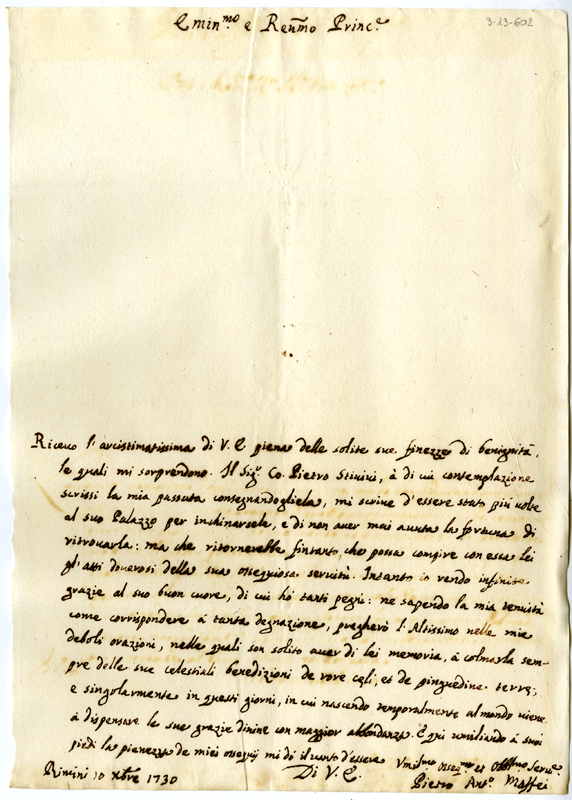 Emin.mo e Reu.mo Princ.e
3-13-602
Riceuo l'arcistimatissima di V. E. piena delle solite sue finezze di benignità,
le quali mi sorprendono. Il Sig.r Co. Pietro à di cui contemplazione
scrissi la mia passata consegnandogliela, mi scriue d'essere stato più uolte
al suo Palazzo per inchinarsele, e di non auer mai auuta la fortuna di
ritrouarla: ma che ritornerebbe fintanto, che possa compire con essa lei
gl'atti douerosi della sua ossequiosa seruitù. Intanto io rendo infinite
grazie al suo buon cuore, di cui hò tanti pegni: ne sapendo la mia tenuità
come corrispondere à tanta degnazione, pregherò l'Altissimo nelle mie
deboli orazioni, nelle quali son solito auer di lei memoria, à colmarla sem-
pre delle sue celestiali benedizioni de rore cęli, et de pinguedine terrę;
e singolarmente in questi giorni, in cui nascendo temporalmente al mondo uiene
à dispensare le sue grazie diuine con maggior abbondanza. E qui umiliando à suoi
piedi la pienezza de miei ossequij mi dò il uanto d'essere
Di V. E.
Rimini 10 Xbre 1730
Vmil.mo Osseq.mo et Obl.mo Seru.e
Pietro Ant.o Maffei